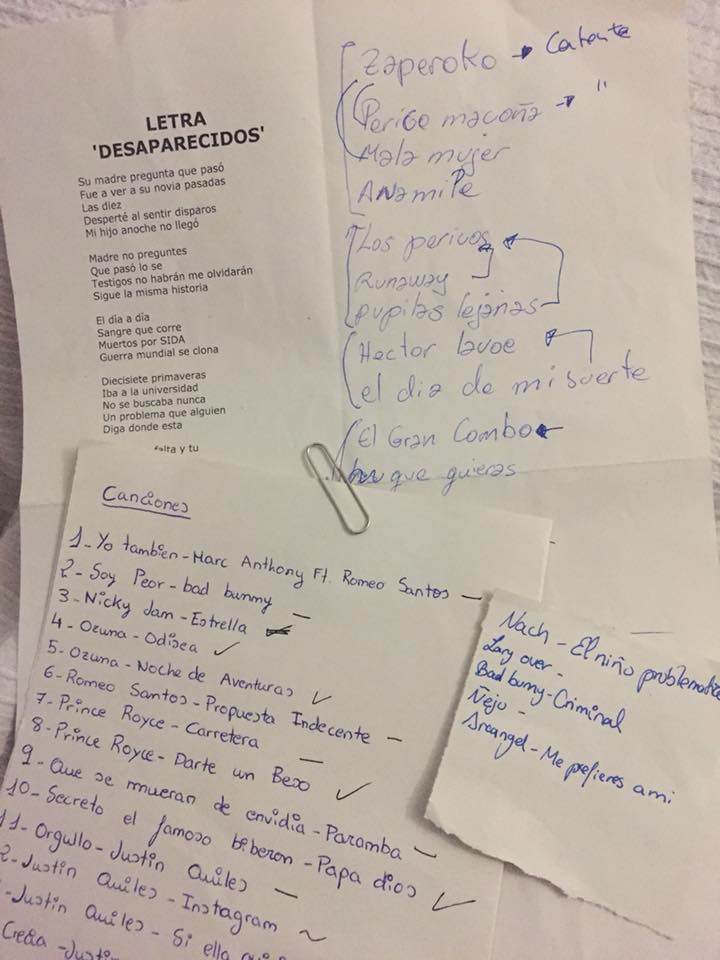 LETRA
'DESAPARECIDOS'
Su madre pregunta que pasó
Fue a ver a su novia pasadas
Las diez
Desperté al sentir disparos
Mi hijo anoche no llegó
Madre no preguntes
Que pasó lo se
Testigos no habrán me olvidarán
Sigue la misma historia
El día a día
Sangre que corre
Muertos por SIDA
Guerra mundial se clona
Diecisiete primaveras
Iba a la universidad
No se buscaba nunca
Un problema que alguien
Diga donde esta
falta y tu
Zaperoko → Caliente
Perico macoña → "
Mala mujer
Anamile
Los pericos
Runaway
pupilas lejanas
Hector lavoe
el dia de mi suerte
El Gran Combo
que quieras
Canciones
1- Yo tambien - Marc Anthony Ft. Romeo Santos —
2- Soy Peor - bad bunny —
3- Nicky Jam - Estrella
4- Ozuna - Odisea ✓
5- Ozuna - Noche de Aventuras ✓
6- Romeo Santos - Propuesta Indecente —
7- Prince Royce - Carretera —
8- Prince Royce - Darte un Beso ✓
9- Que se mueran de envidia - Paramba —
10- Secreto el famoso biberon - Papa dios ✓
11- Orgullo - Justin Quiles —
2- Justin Quiles - Instagram ~
- Justin Quiles - Si ella
Creia - Justin
Nach - El niño problematico
Lary over -
Bad buny - Criminal
Ñejo -
Arcangel - Me prefieres a mi